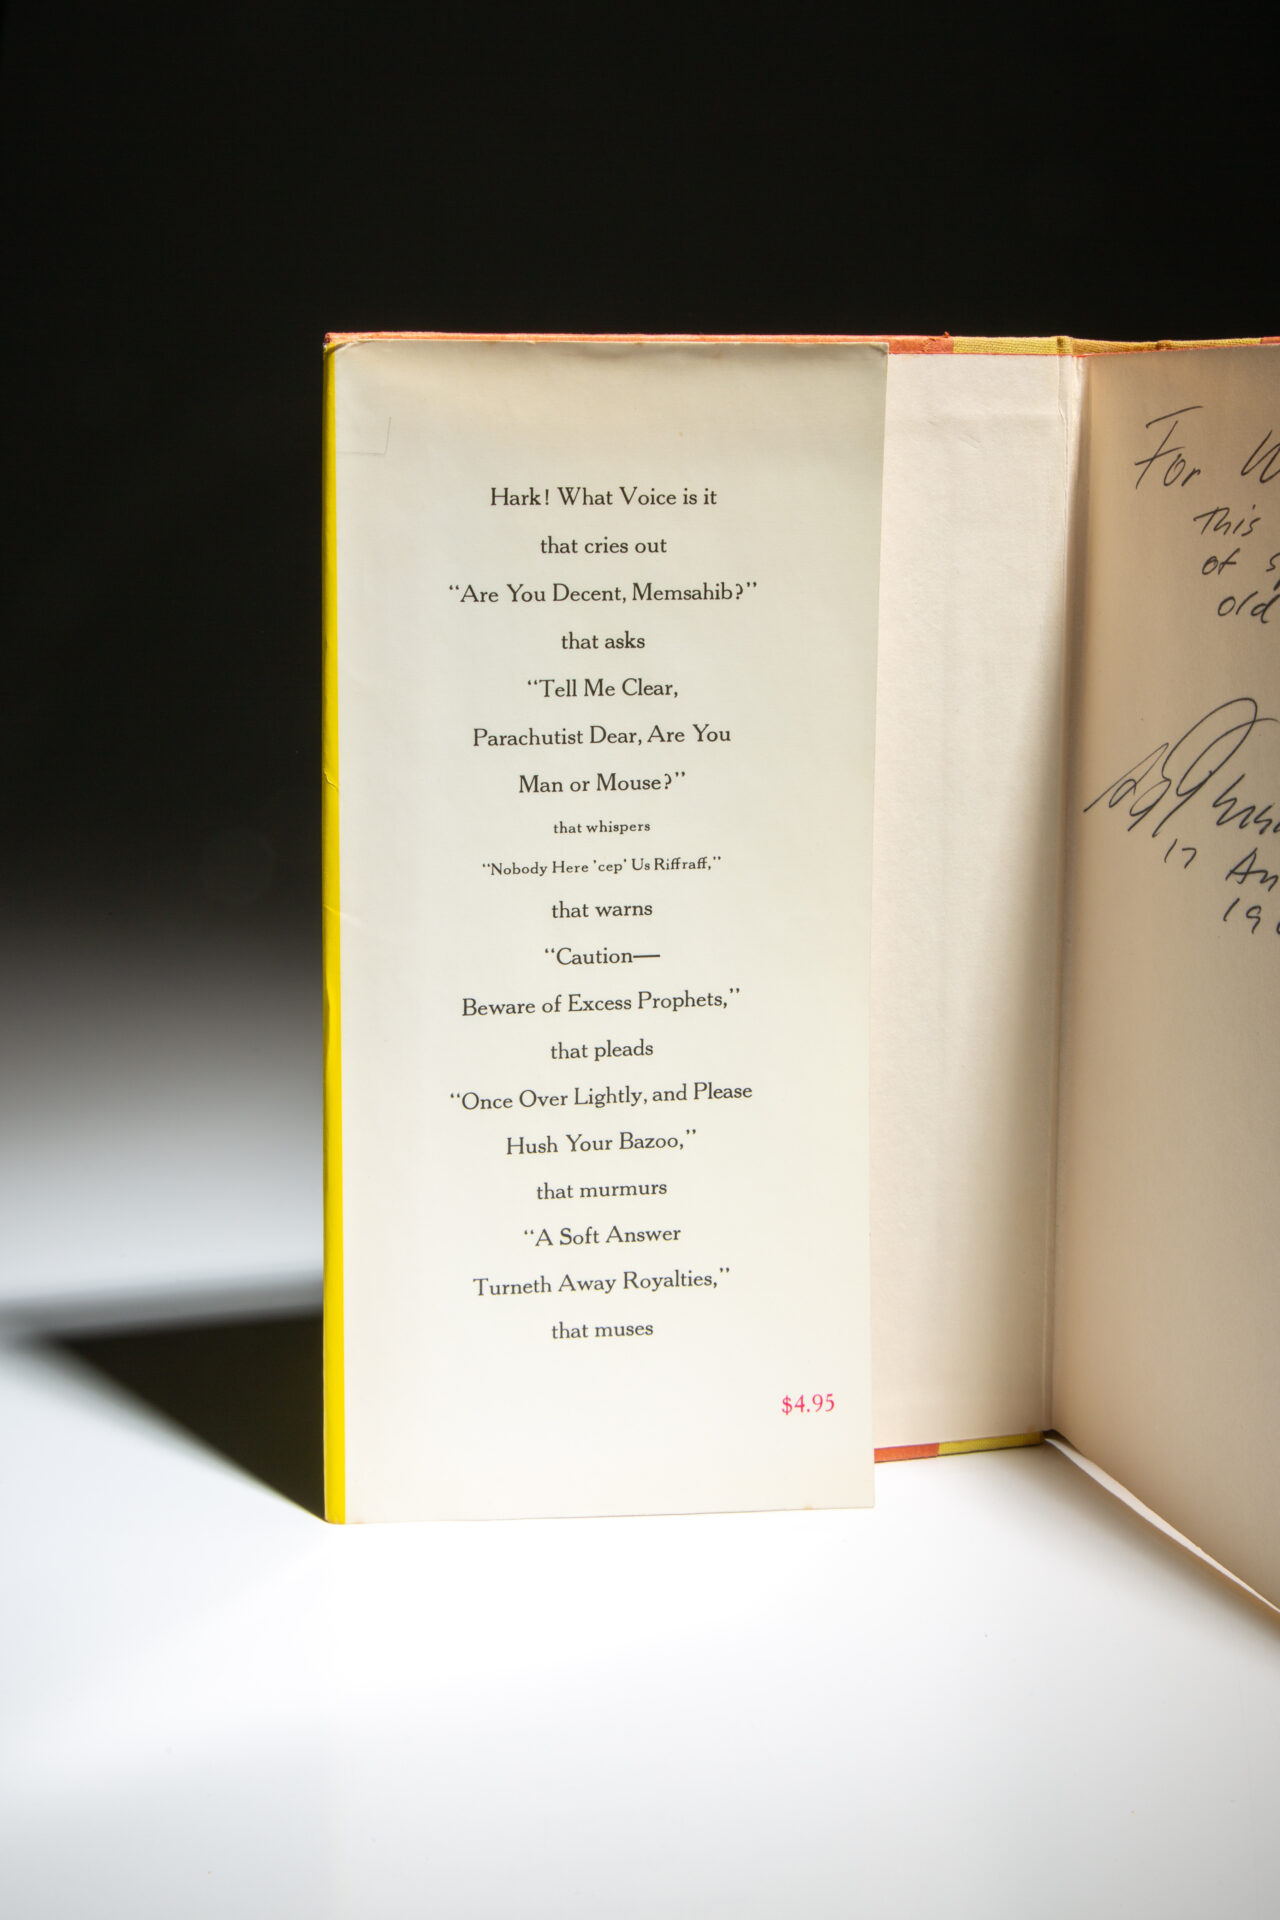 Hark! What Voice is it
that cries out
“Are You Decent, Memsahib?”
that asks
“Tell Me Clear,
Parachutist Dear, Are You
Man or Mouse?”
that whispers
“Nobody Here 'cep' Us Riffraff,”
that warns
“Caution—
Beware of Excess Prophets,”
that pleads
“Once Over Lightly, and Please
Hush Your Bazoo,”
that murmurs
“A Soft Answer
Turneth Away Royalties,”
that muses
$4.95
For
This
of
old
17